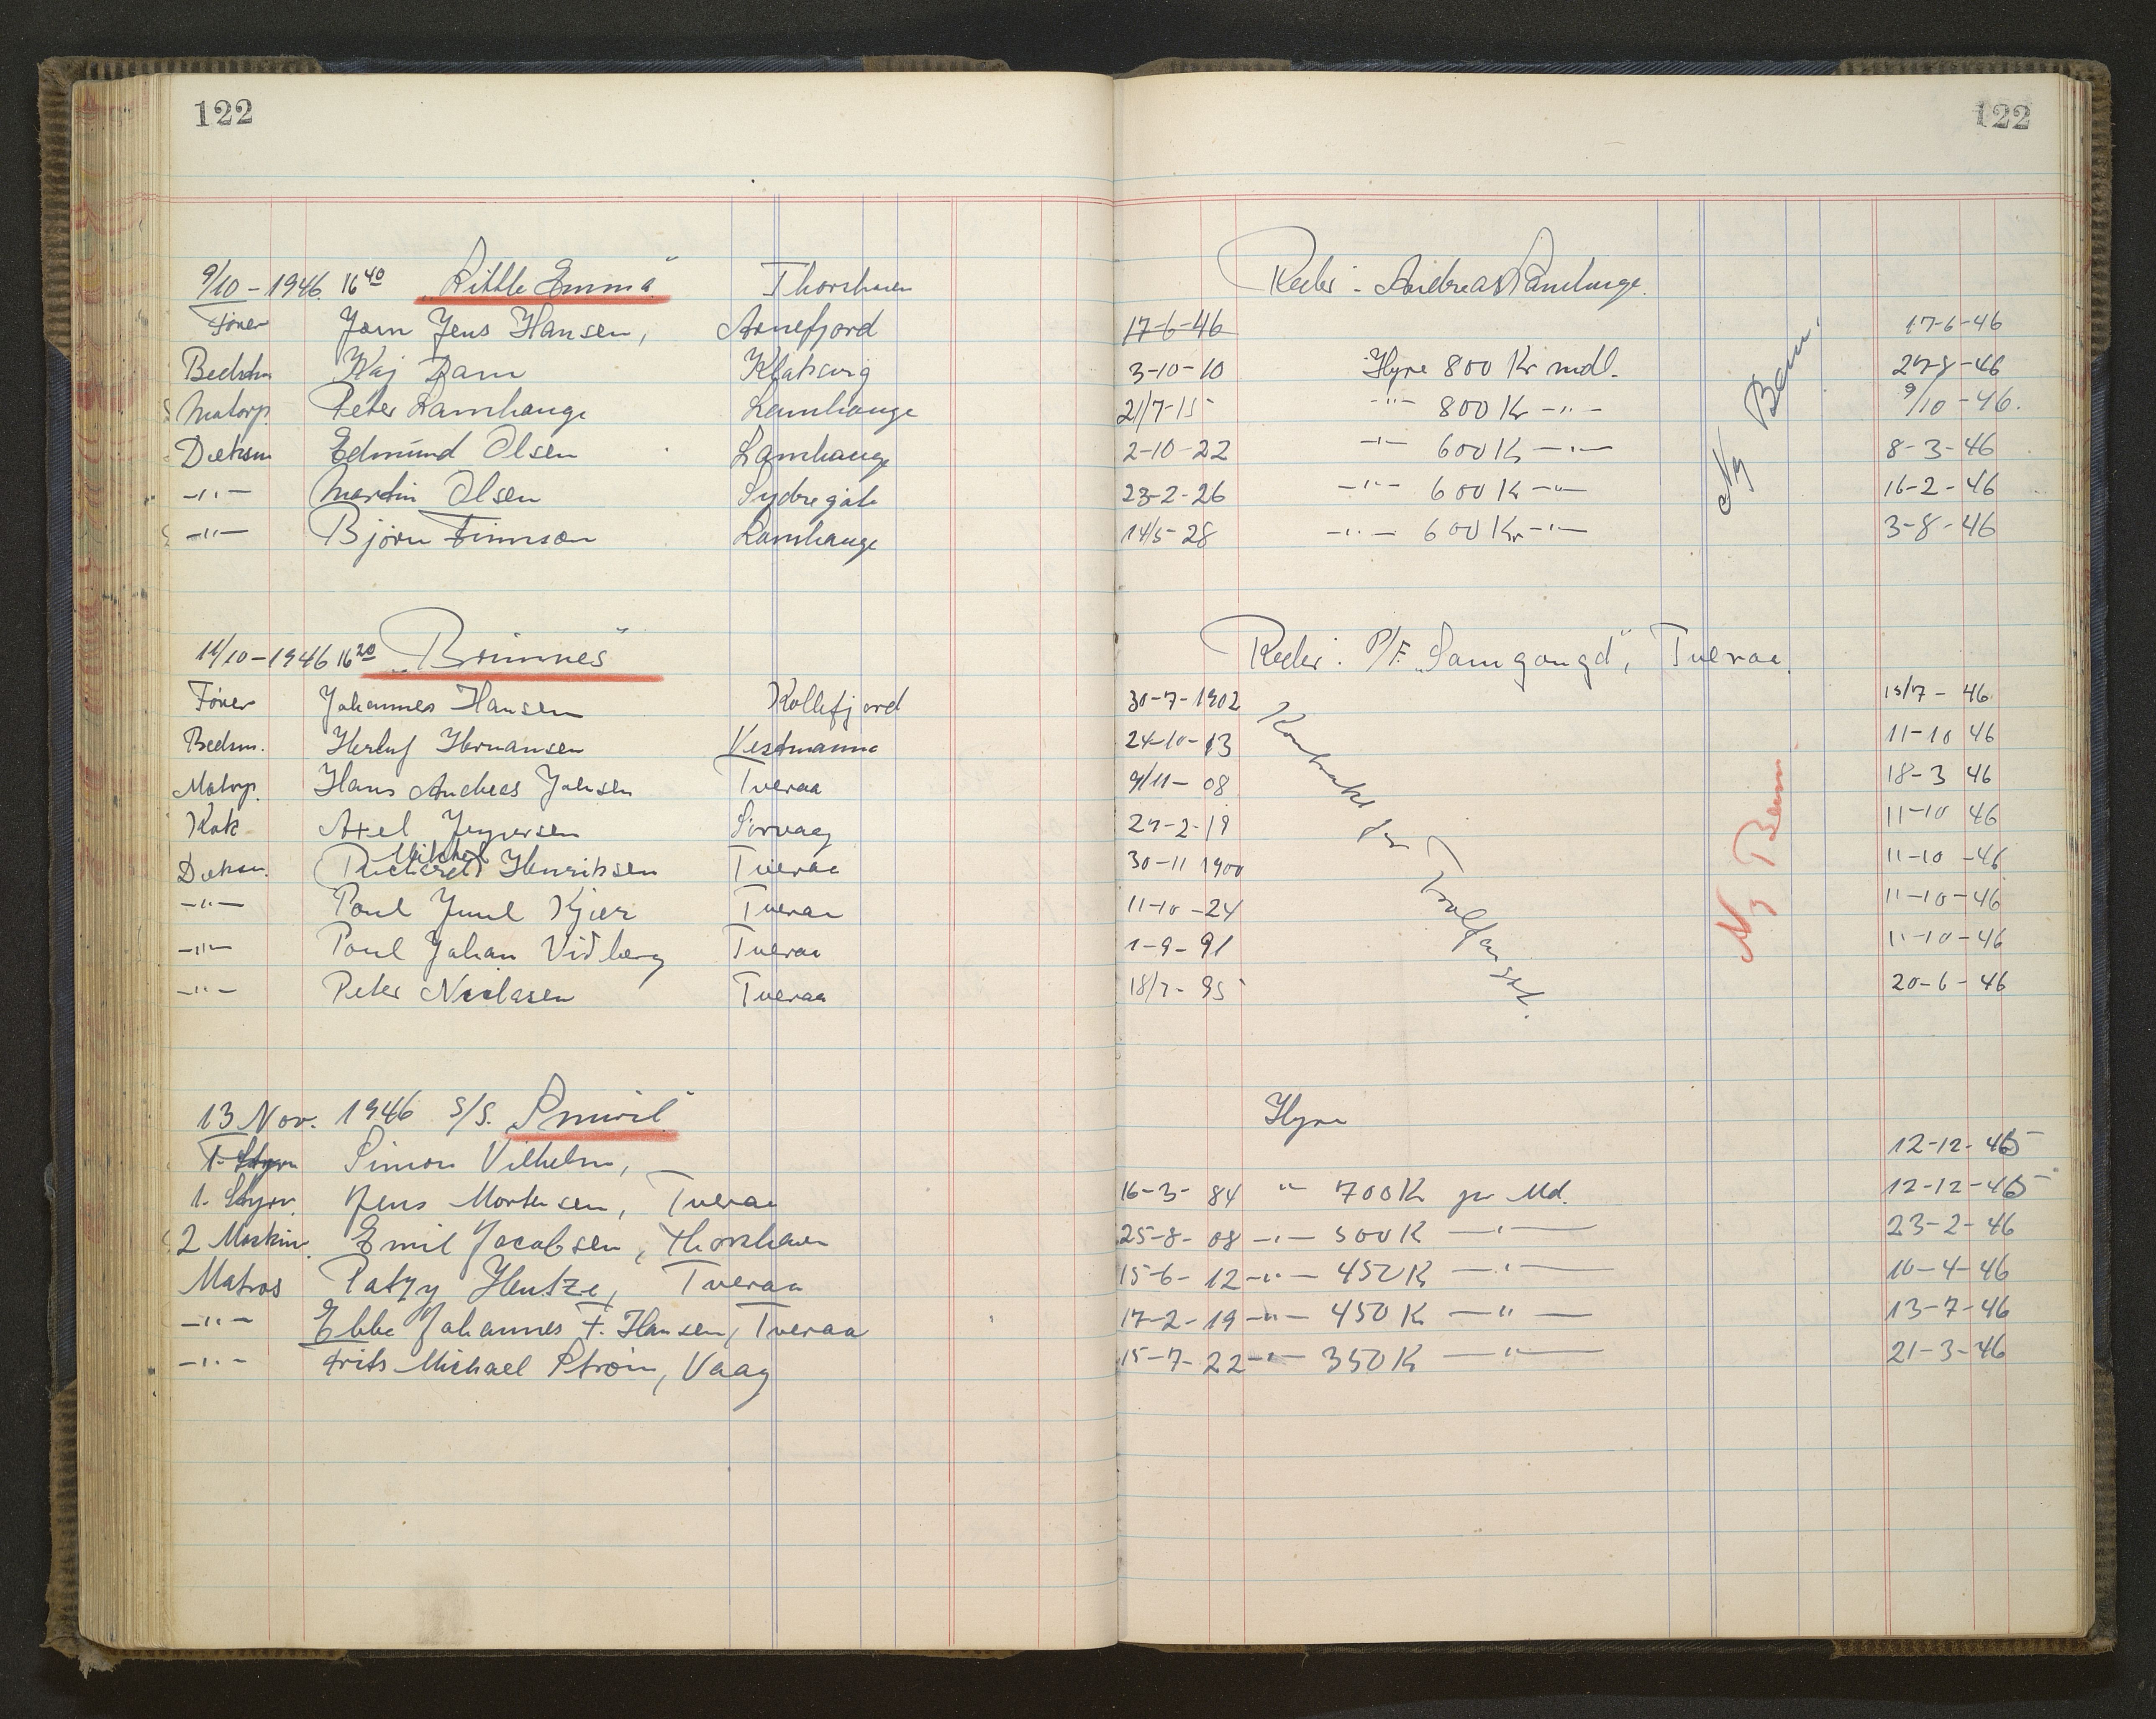 122
122
9/10 - 1946. 16 40 "Little Emma" Thorshavn Reder: Andreas Lamhauge.
Fører Jørn Jens Hansen, Arnefjord 17-6-46 17-6-46
Bedstm Kaj Dam Klaksvig 3-10-10 Hyre 800 Kr mdl. 27-8-46
Matorp. Peter Lamhauge Lamhauge 21/7-15 -"- 800 Kr -"- 9/10-46.
Dæksm Edmund Olsen Lamhauge 2-10-22 -"- 600 K -"- 8-3-46
-"- Martin Olsen Sydregøte 23-2-26 -"- 600 K -"- 16-2-46
-"- Bjørn Finnson Lamhauge 14/5-28 -"- 600 Kr -"- 3-8-46
Ny Bem.
11/10-1946 16 20 "Brimnes" Reder: P/F. "Samgongd", Tveraa.
Fører Johannes Hansen Kollefjord 30-7-1902 15/7-46
Bedsm. Herluf Hermansen Vestmanna 24-10-13 11-10 46
Motorp. Hans Andreas Johsen Tveraa 9/11-08 18-3 46
Kok Axel Jespersen Sørvaag 27-2-19 11-10 46
Mikkel
Dæksm. Richard Henriksen Tveraa 30-11 1900 11-10-46
-"- Poul Juul Kjær Tveraa 11-10-24 11-10-46
-"- Poul Johan Vidberg Tveraa 1-9-91 11-10-46
-"- Peter Niclasen Tveraa 18/7-95 20-6-46
Kontrakt for
Ny Bem
13 Nov. 1946 S/S. "Smiril" Hyre
1. Styrm Simon Vilhelm, 12-12-45
1. Styrm. Jens Mortensen, Tveraa 16-3-84 " 700 Kr pr Md. 12-12-45
2 Maskin. Emil Jacobsen, Thorshavn 25-8-08 -"- 500 K -"- 23-2-46
Matros Patzy Hentze, Tveraa 15-6-12 -"- 450 K -"- 10-4-46
-"- Ebbe Johannes F. Hansen, Tveraa 17-2-19 -"- 450 K -"- 13-7-46
-"- Frits Michael Strøm, Vaag 15-7-22 -"- 350 K -"- 21-3-46